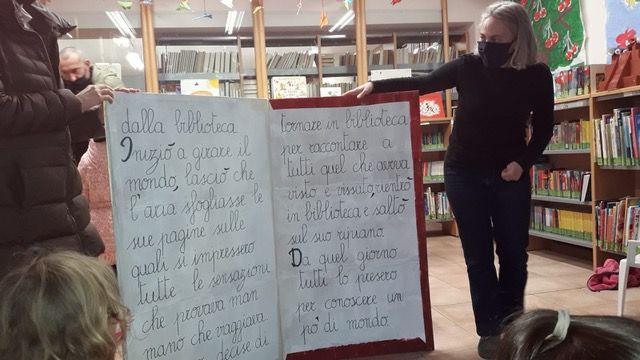 dalla biblioteca.
Iniziò a girare il
mondo, lasciò che
l'aria sfogliasse le
sue pagine sulle
quali si impressero
tutte le sensazioni
che provava man
mano che viaggiava
decise di
tornare in biblioteca
per raccontare a
tutti quel che aveva
visto e vissuto, rientrò
in biblioteca e saltò
sul suo ripiano.
Da quel giorno
tutti lo presero
per conoscere un
pò di mondo.